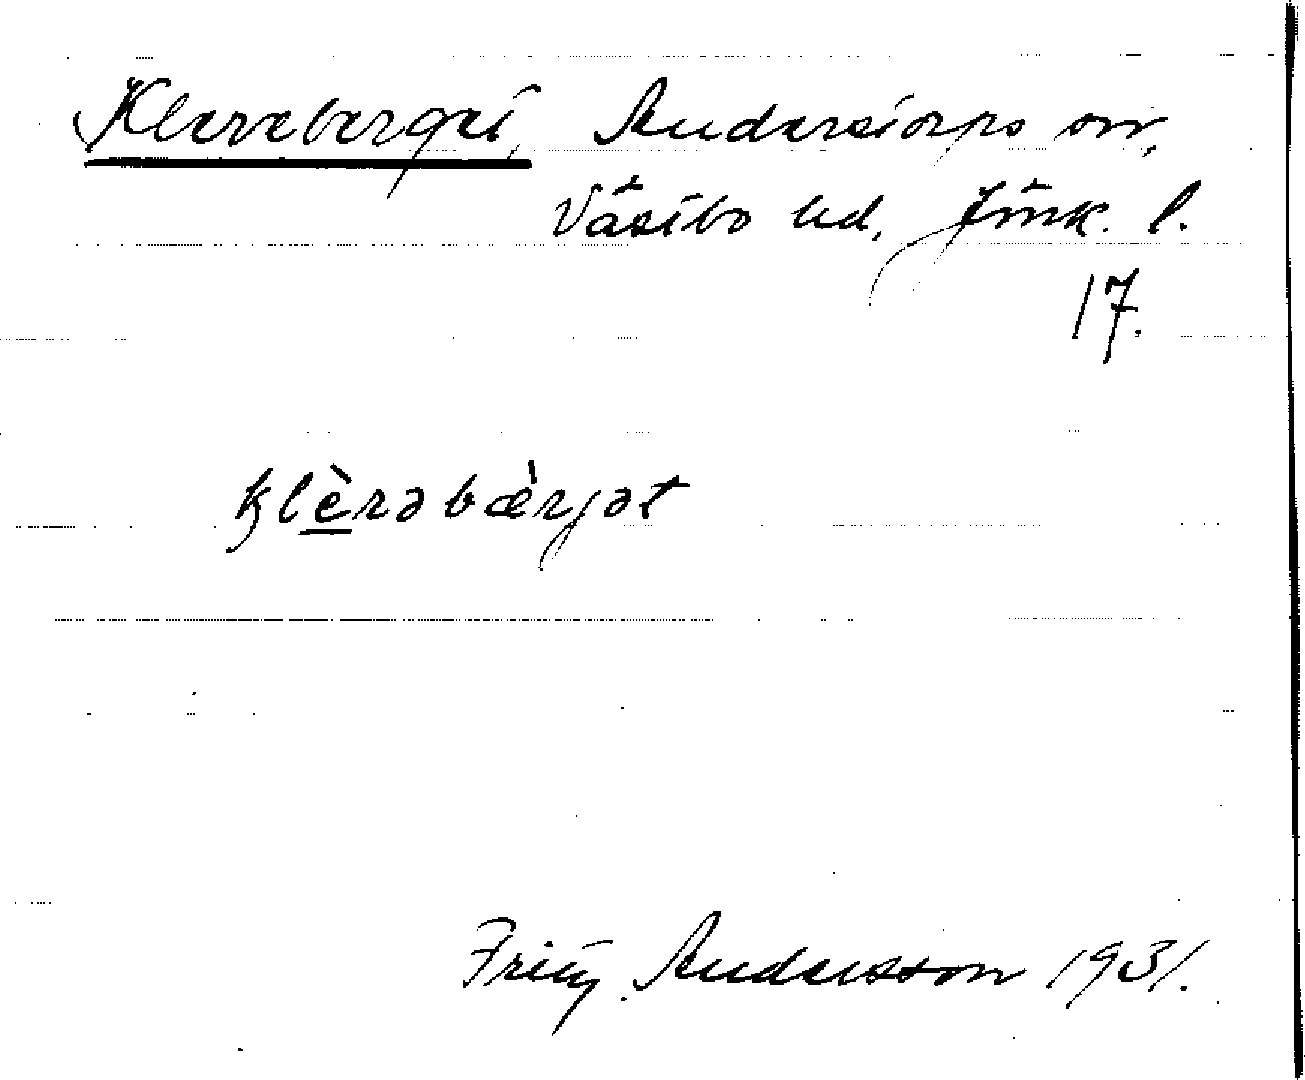 Klereberget, Anderstorps sn,
Västbo hd, Jönk. l.
17.
klèrəbæ̀rjət
Fritz Andersson 1931.